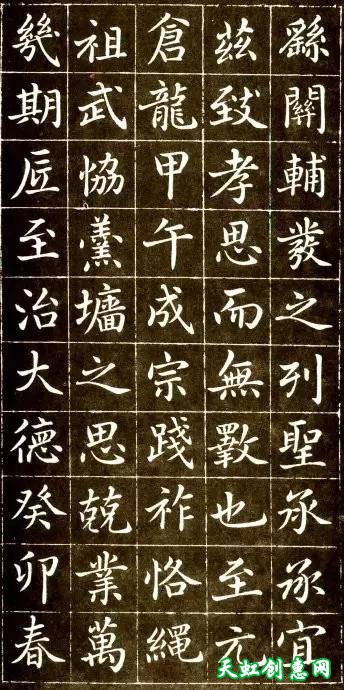 繇關輔發之列聖承承宜
茲致孝思而無斁也至元
倉龍甲午成宗踐祚恪繩
祖武恊羹墻之思兢業萬
幾期厎至治大德癸卯春
天虹创意网